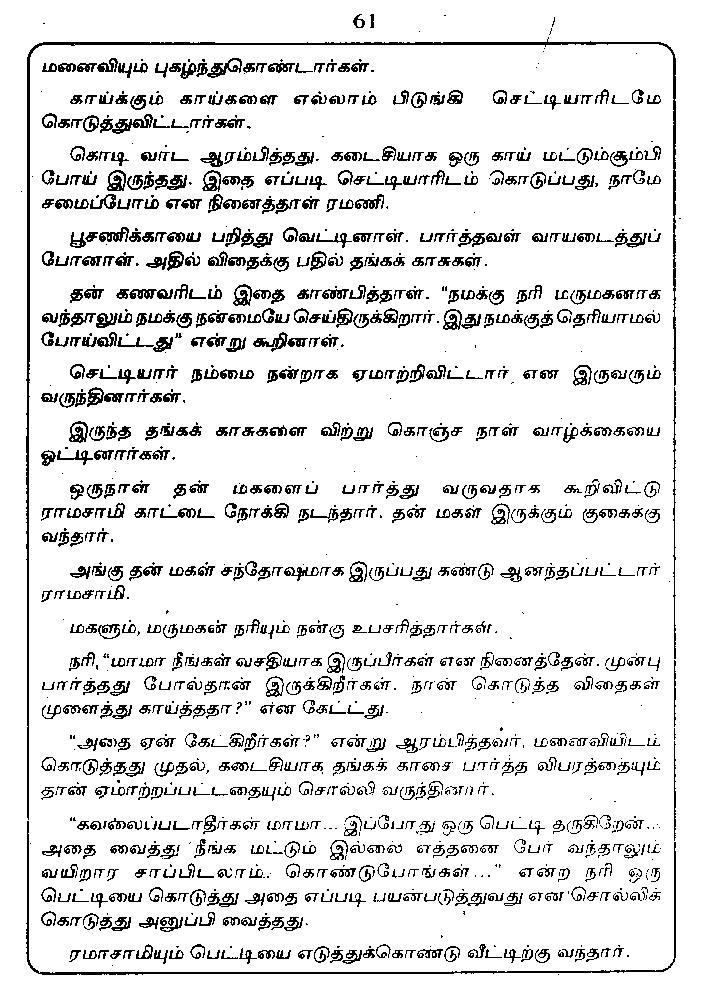 61
மனைவியும் புகழ்ந்துகொண்டார்கள்.
காய்க்கும் காய்களை எல்லாம் பிடுங்கி செட்டியாரிடமே
கொடுத்துவிட்டார்கள்.
கொடி வாட ஆரம்பித்தது. கடைசியாக ஒரு காய் மட்டும்சூம்பி
போய் இருந்தது. இதை எப்படி செட்டியாரிடம் கொடுப்பது, நாமே
சமைப்போம் என நினைத்தாள் ரமணி.
பூசணிக்காயை பறித்து வெட்டினாள். பார்த்தவள் வாயடைத்துப்
போனாள். அதில் விதைக்கு பதில் தங்கக் காசுகள்.
தன் கணவரிடம் இதை காண்பித்தாள். "நமக்கு நரி மருமகனாக
வந்தாலும் நமக்கு நன்மையே செய்திருக்கிறார். இது நமக்குத் தெரியாமல்
போய்விட்டது" என்று கூறினாள்.
செட்டியார் நம்மை நன்றாக ஏமாற்றிவிட்டார் என இருவரும்
வருந்தினார்கள்.
இருந்த தங்கக் காசுகளை விற்று கொஞ்ச நாள் வாழ்க்கையை
ஓட்டினார்கள்.
ஒருநாள் தன் மகளைப் பார்த்து வருவதாக கூறிவிட்டு
ராமசாமி காட்டை நோக்கி நடந்தார். தன் மகள் இருக்கும் குகைக்கு
வந்தார்.
அங்கு தன் மகள் சந்தோஷமாக இருப்பது கண்டு ஆனந்தப்பட்டார்
ராமசாமி.
மகளும், மருமகன் நரியும் நன்கு உபசரித்தார்கள்.
நரி, "மாமா நீங்கள் வசதியாக இருப்பீர்கள் என நினைத்தேன். முன்பு
பார்த்தது போல்தான் இருக்கிறீர்கள். நான் கொடுத்த விதைகள்
முளைத்து காய்த்ததா?" என கேட்டது.
"அதை ஏன் கேட்கிறீர்கள்?" என்று ஆரம்பித்தவர், மனைவியிடம்
கொடுத்தது முதல், கடைசியாக தங்கக் காசை பார்த்த விபரத்தையும்
தான் ஏமாற்றப்பட்டதையும் சொல்லி வருந்தினார்.
"கவலைப்படாதீர்கள் மாமா... இப்போது ஒரு பெட்டி தருகிறேன்...
அதை வைத்து நீங்க மட்டும் இல்லை எத்தனை பேர் வந்தாலும்
வயிறார சாப்பிடலாம்.. கொண்டுபோங்கள்..." என்ற நரி ஒரு
பெட்டியை கொடுத்து அதை எப்படி பயன்படுத்துவது என சொல்லிக்
கொடுத்து அனுப்பி வைத்தது.
ரமாசாமியும் பெட்டியை எடுத்துக்கொண்டு வீட்டிற்கு வந்தார்.